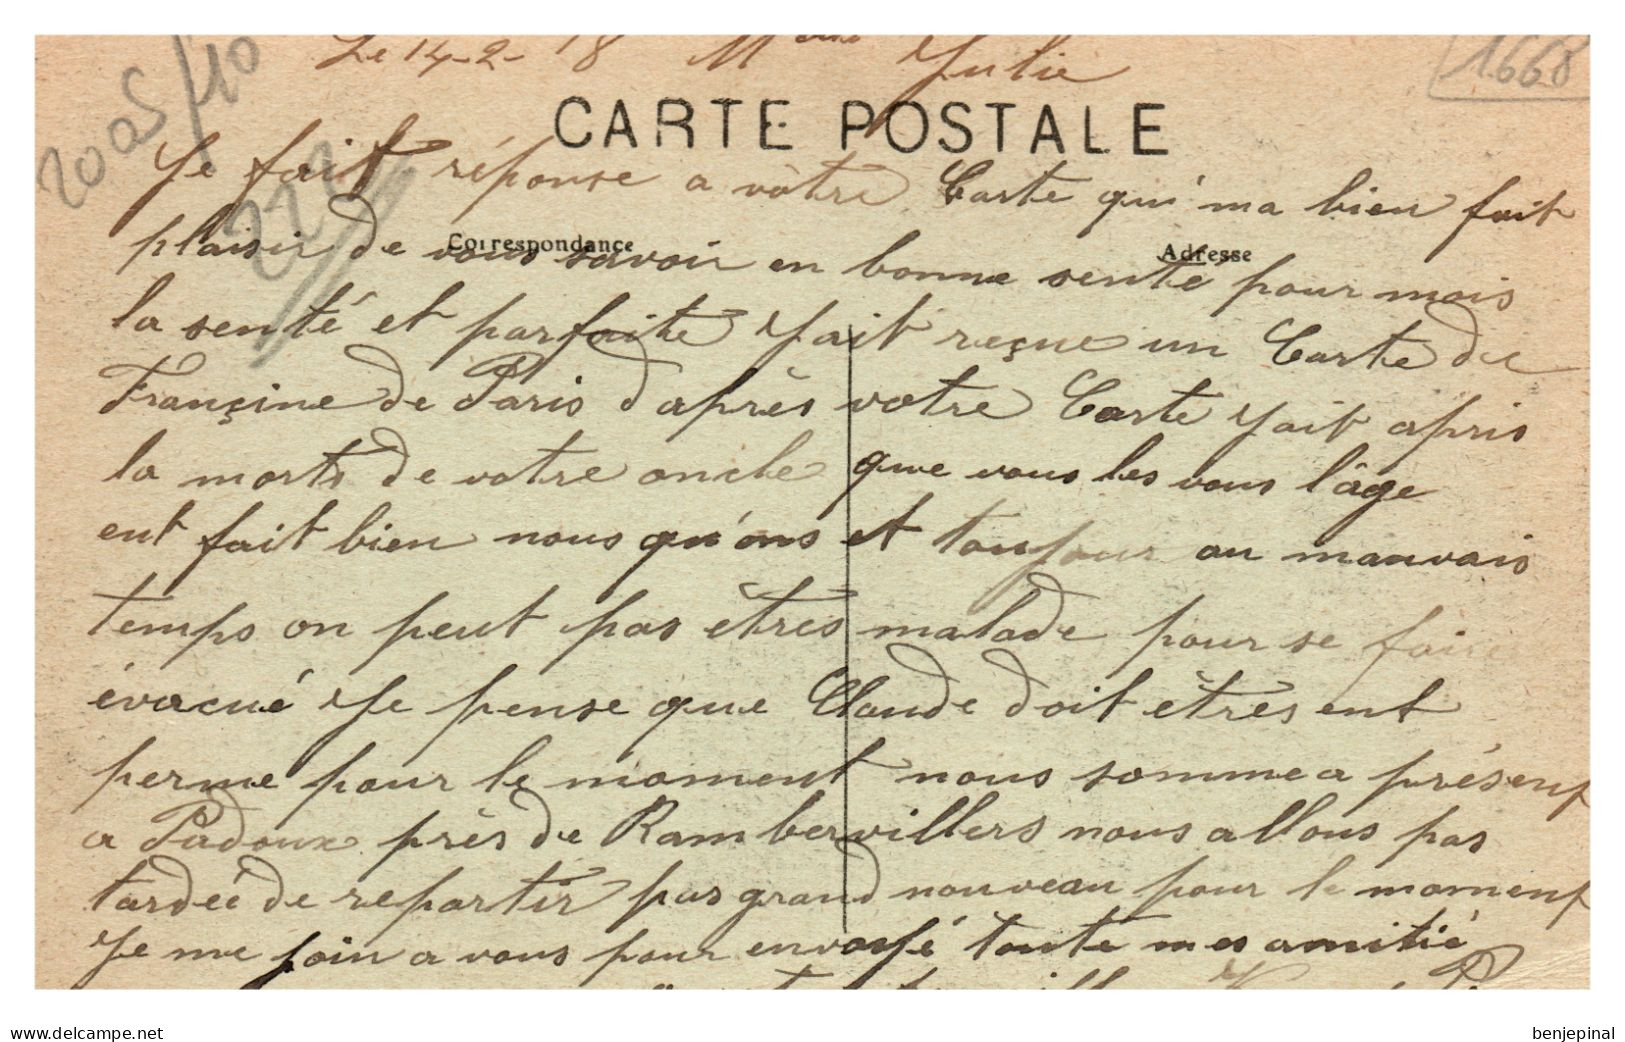 Le 14-2-18 Mme Julie
1668
2005/10
CARTE POSTALE
Je fait réponse a vòtre Carte qui ma bien fait
Correspondance
Adresse
plaisir de vous savoir en bonne sente pour mois
la senté et parfaite Jait reçue un Carte de
Françine de Paris d'après votre Carte Jait apris
la morts de votre oncle que vous les vous l'âge
ent fait bien nous qu'ons et toujour au mauvais
temps on peut pas êtres malade pour se faire
évacué Je pense que Claude doit êtres ent
perme pour le moment nous somme a présent
a Padoux près de Rambervillers nous allons pas
tardée de repartir pas grand nouveau pour le moment
Je me join a vous pour envoyé toute mes amitié
www.delcampe.net
benjepinal